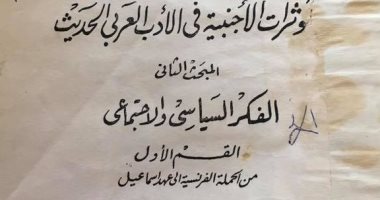 وثرات الأجنبية فى الأدب العربى الحديث
المبحث الثانى
الفكر السياسى والاجتماعى
القسم الأول
من الحملة الفرنسية إلى عهد اسماعيل